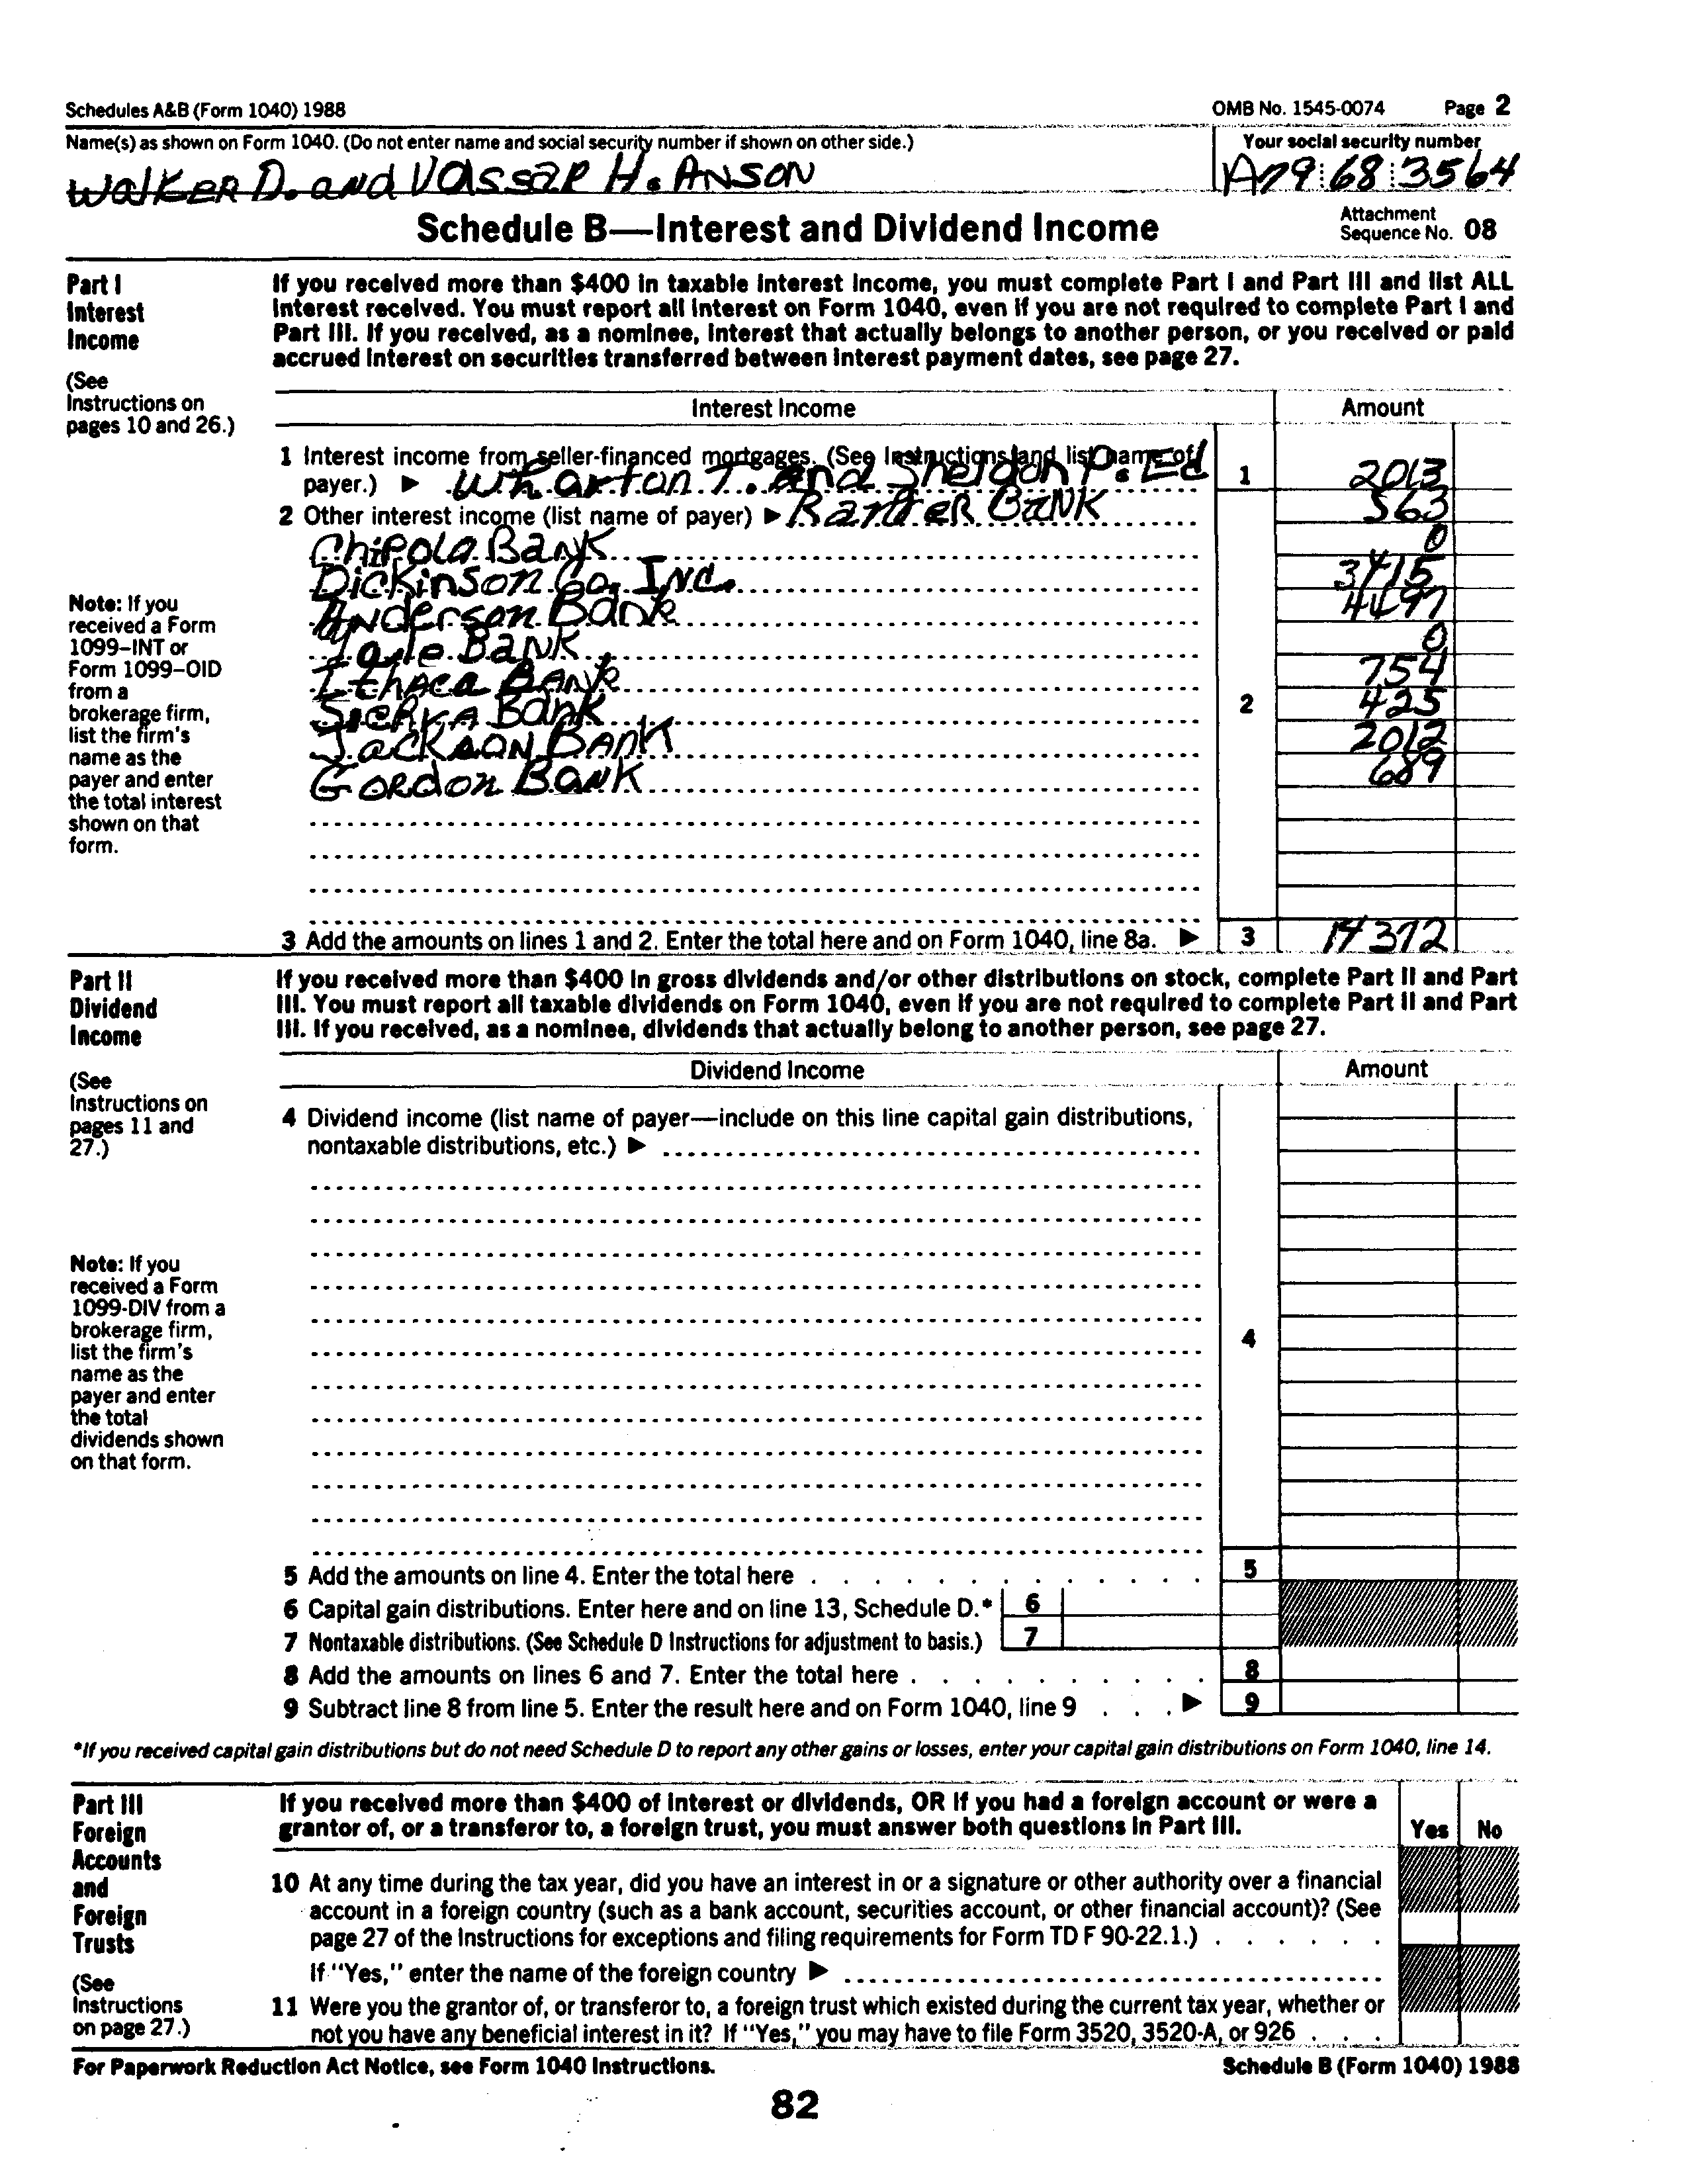 Schedules A&B (Form 1040) 1988 OMB No. 1545-0074 Page 2
Name(s) as shown on Form 1040. (Do not enter name and social security number if shown on other side.) Your social security number
WalkER D. and VassaR H. ANSON 79 68 3564
Schedule B—Interest and Dividend Income Attachment Sequence No. 08
Part I
Interest
Income
(See
Instructions on
pages 10 and 26.)
If you received more than $400 in taxable interest income, you must complete Part I and Part III and list ALL
interest received. You must report all interest on Form 1040, even if you are not required to complete Part I and
Part III. If you received, as a nominee, interest that actually belongs to another person, or you received or paid
accrued interest on securities transferred between interest payment dates, see page 27.
Interest Income Amount
1 Interest income from seller-financed mortgages. (See Instructions and list name of
payer.) ▶ Wharton T. and Sheldon P. Ed 1 2013
2 Other interest income (list name of payer) ▶ BaRNER BaNK 563
Chipola Bank 0
Dickinson Co. Inc. 3415
Anderson Bank 4497
Yale Bank 0
Ithaca Bank 754
Sierra Bank 2 425
Jackson Bank 2012
Gordon Bank 689
Note: If you
received a Form
1099–INT or
Form 1099–OID
from a
brokerage firm,
list the firm's
name as the
payer and enter
the total interest
shown on that
form.
3 Add the amounts on lines 1 and 2. Enter the total here and on Form 1040, line 8a. ▶ 3 14372
Part II
Dividend
Income
(See
Instructions on
pages 11 and
27.)
If you received more than $400 in gross dividends and/or other distributions on stock, complete Part II and Part
III. You must report all taxable dividends on Form 1040, even if you are not required to complete Part II and Part
III. If you received, as a nominee, dividends that actually belong to another person, see page 27.
Dividend Income Amount
4 Dividend income (list name of payer—include on this line capital gain distributions,
nontaxable distributions, etc.) ▶
4
Note: If you
received a Form
1099-DIV from a
brokerage firm,
list the firm's
name as the
payer and enter
the total
dividends shown
on that form.
5 Add the amounts on line 4. Enter the total here 5
6 Capital gain distributions. Enter here and on line 13, Schedule D.* 6
7 Nontaxable distributions. (See Schedule D Instructions for adjustment to basis.) 7
8 Add the amounts on lines 6 and 7. Enter the total here 8
9 Subtract line 8 from line 5. Enter the result here and on Form 1040, line 9 ▶ 9
*If you received capital gain distributions but do not need Schedule D to report any other gains or losses, enter your capital gain distributions on Form 1040, line 14.
Part III
Foreign
Accounts
and
Foreign
Trusts
(See
Instructions
on page 27.)
If you received more than $400 of interest or dividends, OR if you had a foreign account or were a
grantor of, or a transferor to, a foreign trust, you must answer both questions in Part III. Yes No
10 At any time during the tax year, did you have an interest in or a signature or other authority over a financial
account in a foreign country (such as a bank account, securities account, or other financial account)? (See
page 27 of the Instructions for exceptions and filing requirements for Form TD F 90-22.1.)
If "Yes," enter the name of the foreign country ▶
11 Were you the grantor of, or transferor to, a foreign trust which existed during the current tax year, whether or
not you have any beneficial interest in it? If "Yes," you may have to file Form 3520, 3520-A, or 926
For Paperwork Reduction Act Notice, see Form 1040 Instructions. Schedule B (Form 1040) 1988
82